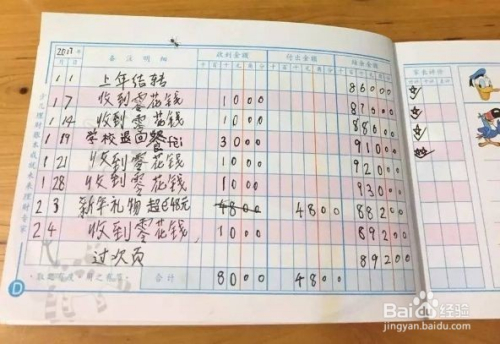 2017年 备注明细 收到金额 付出金额 结余金额
月 日
1 1 上年结转 86000
1 7 收到零花钱 1000 87000
1 14 收到零花钱 1000 88000
1 19 学校退回餐fei 3000 91000
1 21 收到零花钱 1000 92000
1 28 收到零花钱 1000 93000
2 3 新年礼物 48元 4800 4800 88200
2 4 收到零花钱 1000 89200
过次页 89200
合计 8000 4800
D
Baidu经验
jingyan.baidu.com